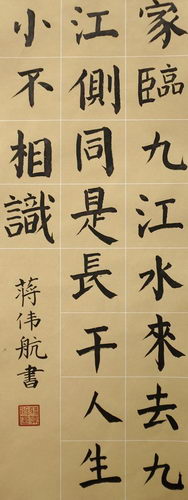 家臨九江水來去九
江側同是長干人生
小不相識
蒋伟航書